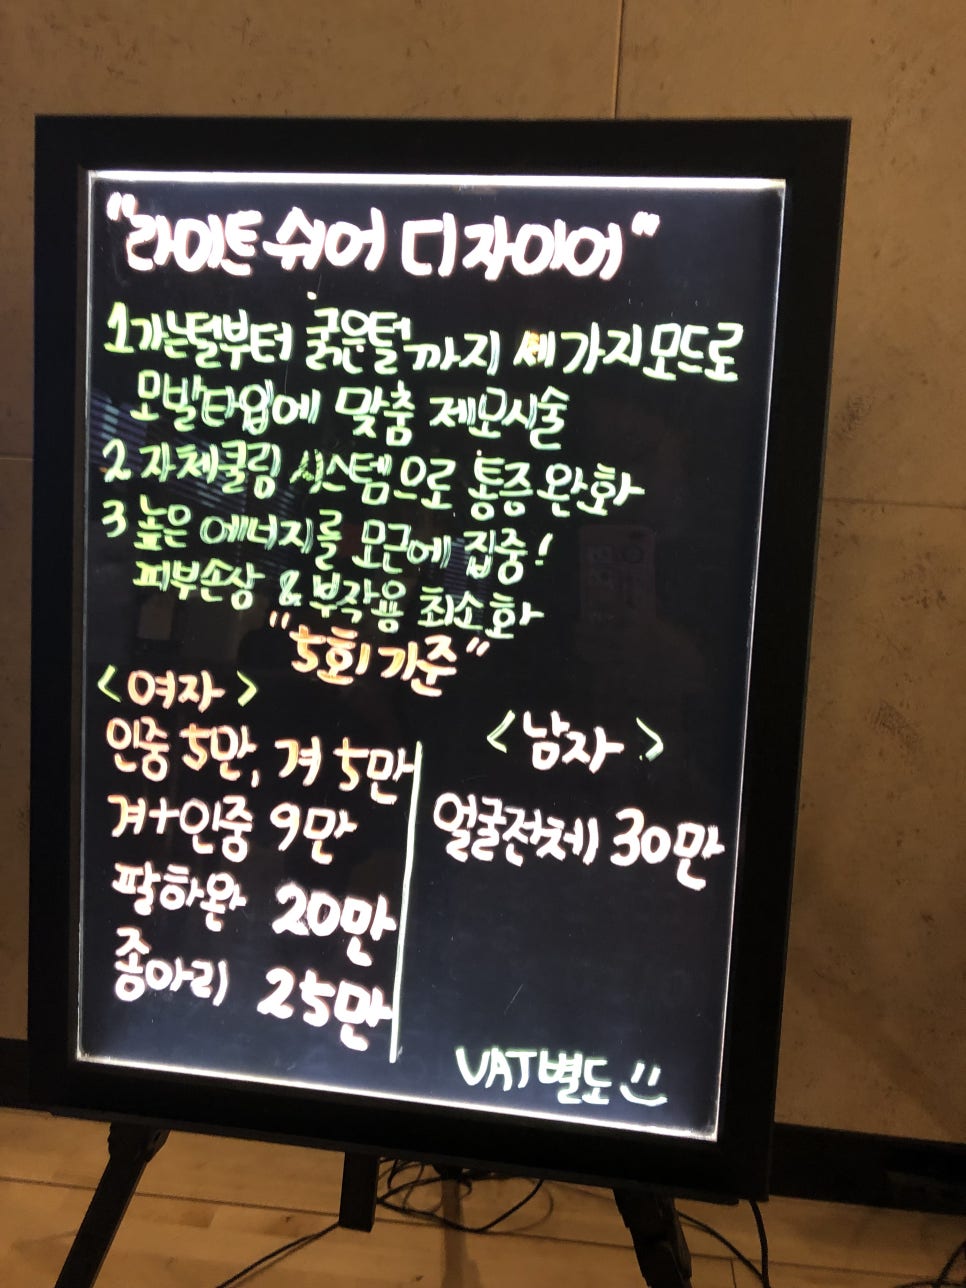 "라이트 쉬어 디자이어"
1 가는털부터 굵은털까지 세가지모드로
모발타입에 맞춤 제모시술
2 자체쿨링 시스템으로 통증완화
3 높은 에너지를 모근에 집중!
피부손상 & 부작용 최소화
"5회 기준"
<여자>
인중 5만, 겨 5만
겨+인중 9만
팔하완 20만
종아리 25만
<남자>
얼굴전체 30만
VAT별도